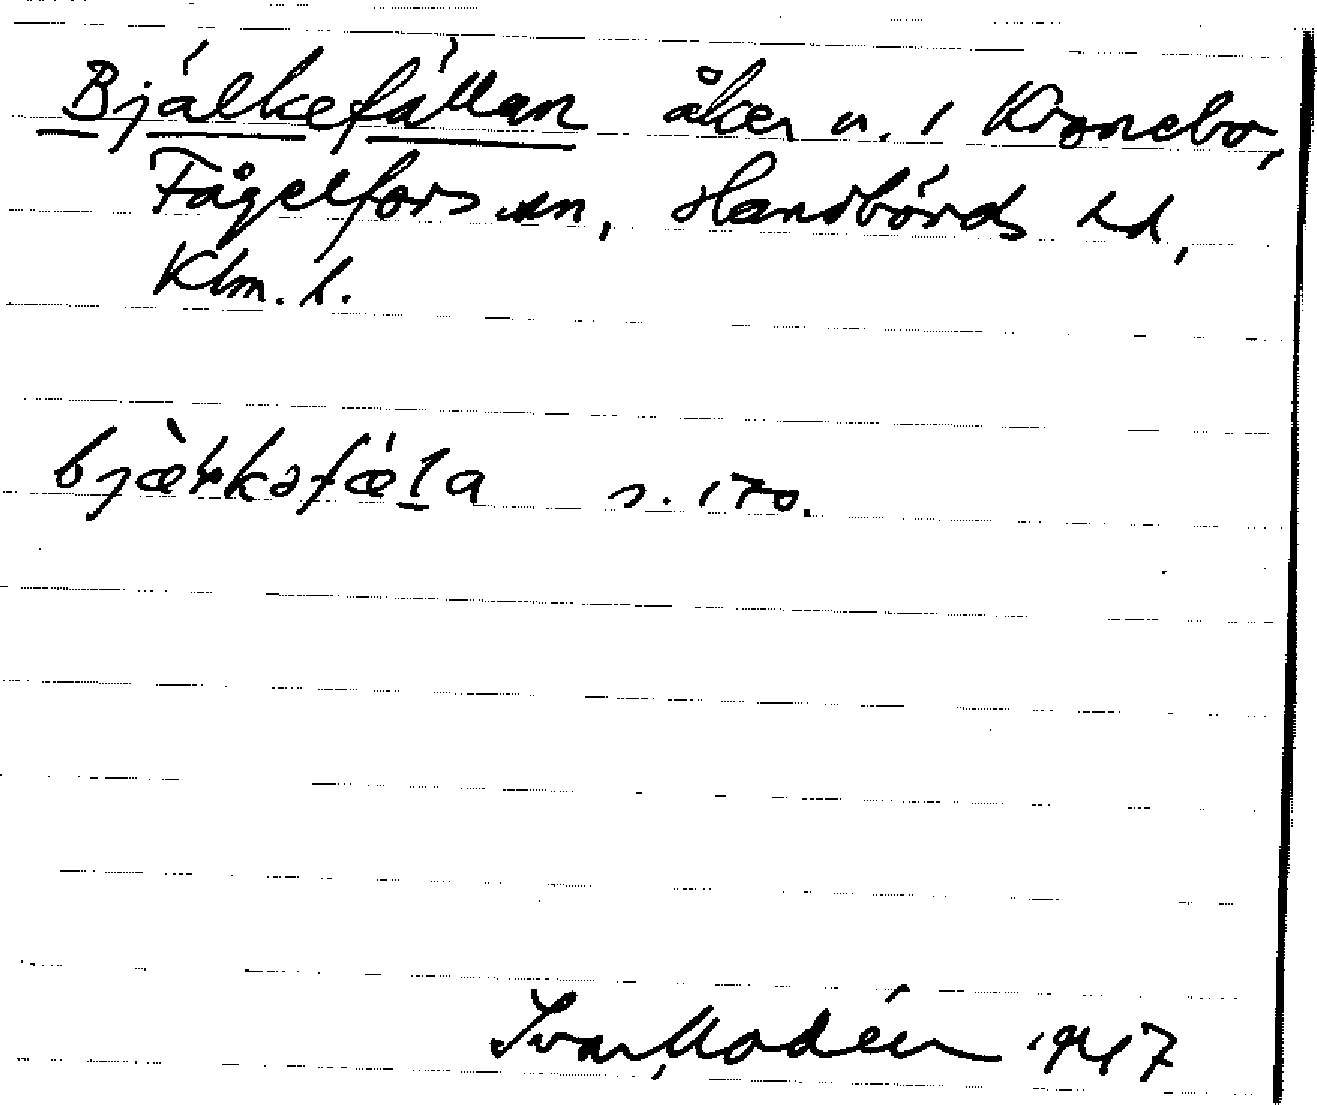 Bjälkefällan åker n. i Kronebo,
Fågelfors sn, Handbörds hd,
Klm. l.
bjæ̀lkəfæ̀l̠a s. ito.
Ivar Modéer 1947